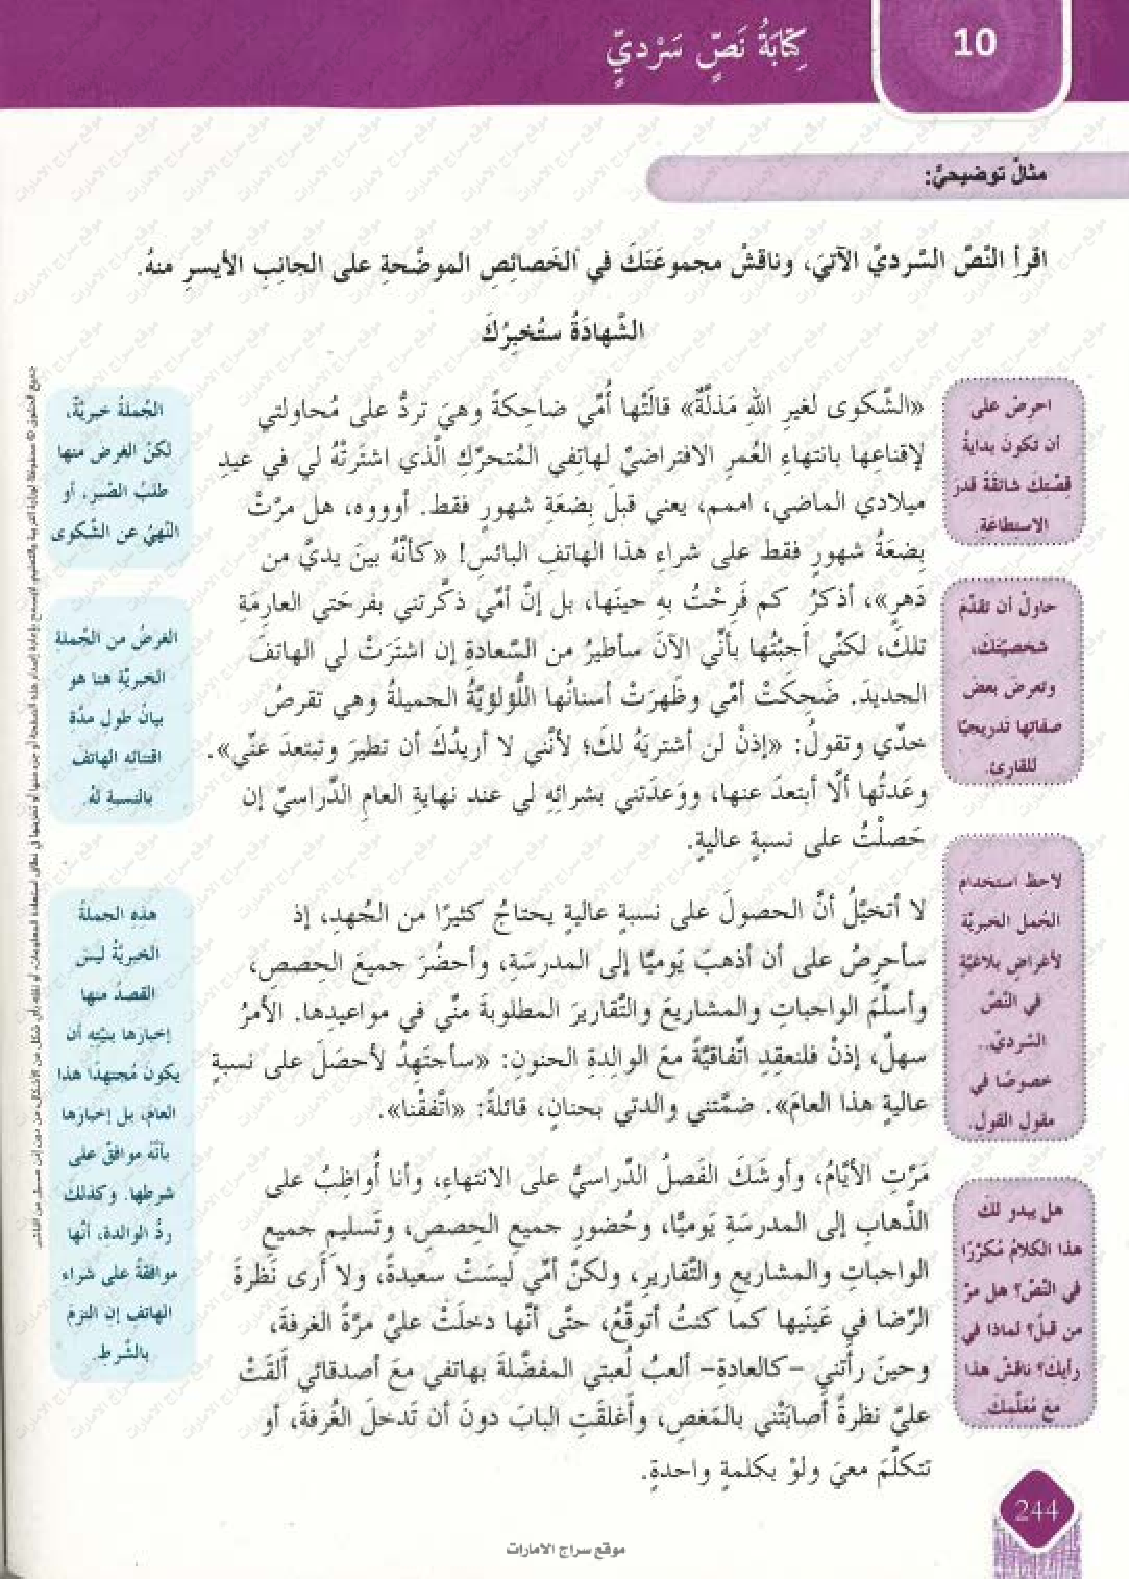 10
كِتابَةُ نَصٍّ سَرْديٍّ
مثالٌ توضيحيٌّ:
اقرأِ النَّصَّ السَّرديَّ الآتيَ، وناقشْ مجموعَتَكَ في الخَصائِصِ الموضَّحةِ على الجانِبِ الأيسرِ منهُ.
الشَّهادَةُ ستُخبِرُكَ
«الشَّكوى لغيرِ اللهِ مَذلَّةٌ» قالَتْها أُمّي ضاحِكةً وهيَ تردُّ على مُحاولتي
لإقناعِها بانتهاءِ العُمرِ الافتراضيِّ لهاتِفي المُتحرّكِ الَّذي اشتَرتْهُ لي في عيدِ
ميلادي الماضي، اممم، يعني قبلَ بِضعَةِ شهورٍ فقط. أوووه، هل مرّتْ
بِضعَةُ شهورٍ فقط على شراءِ هذا الهاتفِ البائسِ! «كأنَّهُ بينَ يديَّ من
دَهرٍ»، أذكرُ كم فَرِحْتُ بهِ حينَها، بل إنَّ أمّي ذكَّرتني بفرحَتي العارِمَةِ
تلكَ، لكنّي أجبْتُها بأنّي الآنَ سأطيرُ من السَّعادةِ إن اشتَرَتْ لي الهاتفَ
الجديدَ. ضَحِكَتْ أمّي وظَهرَتْ أسنانُها اللُّؤلؤيَّةُ الجميلةُ وهي تقرصُ
خدّي وتقولُ: «إذنْ لن أشتريَهُ لكَ؛ لأنَّني لا أريدُكَ أن تطيرَ وتبتعدَ عنّي».
وعَدتُها ألّا أبتعدَ عنها، ووَعدَتني بشرائِهِ لي عند نهايةِ العامِ الدَّراسيِّ إن
حَصلْتُ على نسبةٍ عاليةٍ.
لا أتخيَّلُ أنَّ الحصولَ على نسبةٍ عاليةٍ يحتاجُ كثيرًا من الجُهدِ، إذ
سأحرصُ على أن أذهبَ يَوميًّا إلى المدرسَةِ، وأحضُرَ جميعَ الحِصصِ،
وأسلّمَ الواجباتِ والمشاريعَ والتَّقاريرَ المطلوبةَ منّي في مواعيدِها. الأمرُ
سهلٌ، إذنْ فلنعقِدِ اتّفاقيَّةً معَ الوالِدةِ الحنونِ: «سأجتَهِدُ لأحصَلَ على نسبةٍ
عاليةٍ هذا العامَ». ضمَّتني والدتي بحنانٍ، قائلةً: «اتَّفقْنا».
مَرَّتِ الأيَّامُ، وأوشَكَ الفَصلُ الدَّراسيُّ على الانتهاءِ، وأنا أُواظِبُ على
الذَّهابِ إلى المدرسَةِ يَوميًّا، وحُضورِ جميعِ الحِصصِ، وتَسليمِ جميعِ
الواجباتِ والمشاريعِ والتَّقاريرِ، ولكنَّ أمّي ليسَتْ سعيدةً، ولا أرى نَظرةَ
الرّضا في عَينَيها كما كنتُ أتوقّعُ، حتَّى أنَّها دخلَتْ عليَّ مرَّةً الغرفةَ،
وحينَ رأَتني –كالعادةِ– ألعبُ لُعبتي المفضَّلةَ بهاتفي معَ أصدقائي ألقَتْ
عليَّ نظرةً أصابَتْني بالمَغصِ، وأغلقَتِ البابَ دونَ أن تَدخلَ الغُرفةَ، أو
تتكلَّمَ معيَ ولوْ بكلمةٍ واحدةٍ.
احرصْ على
أن تكونَ بدايةُ
قِصَّتِكَ شائقَةً قدرَ
الاستطاعَةِ.
حاولْ أن تقدّمَ
شخصيّتَكَ،
وتعرضَ بعضَ
صفاتِها تدريجيًّا
للقارئِ.
لاحظ استخدام
الجُمل الخبريَّة
لأغراضٍ بلاغيَّةٍ
في النَّصّ
السَّرديّ..
خصوصًا في
مقولِ القولِ.
هل يبدو لكَ
هذا الكلامُ مُكرّرًا
في النَّصّ؟ هل مرَّ
من قبلُ؟ لماذا في
رأيكَ؟ ناقشْ هذا
معَ مُعلّمِكَ.
الجُملةُ خبريَّةٌ،
لكنَّ الغرضَ منها
طلبُ الصَّبرِ، أو
النَّهيُ عن الشَّكوى
الغرضُ من الجُملة
الخبريَّة هنا هو
بيانُ طولِ مدَّة
اقتنائِهِ الهاتفَ
بالنسبةِ لهُ.
هذهِ الجملةُ
الخبريَّةُ ليسَ
القصدُ منها
إخبارَها بنيّتِه أن
يكونَ مُجتهدًا هذا
العامَ، بل إخبارها
بأنَّهُ موافقٌ على
شرطِها. وكذلكَ
ردُّ الوالدةِ، أنَّها
موافقةٌ على شراءِ
الهاتفِ إن التزمَ
بالشَّرطِ.
244
موقع سراج الامارات